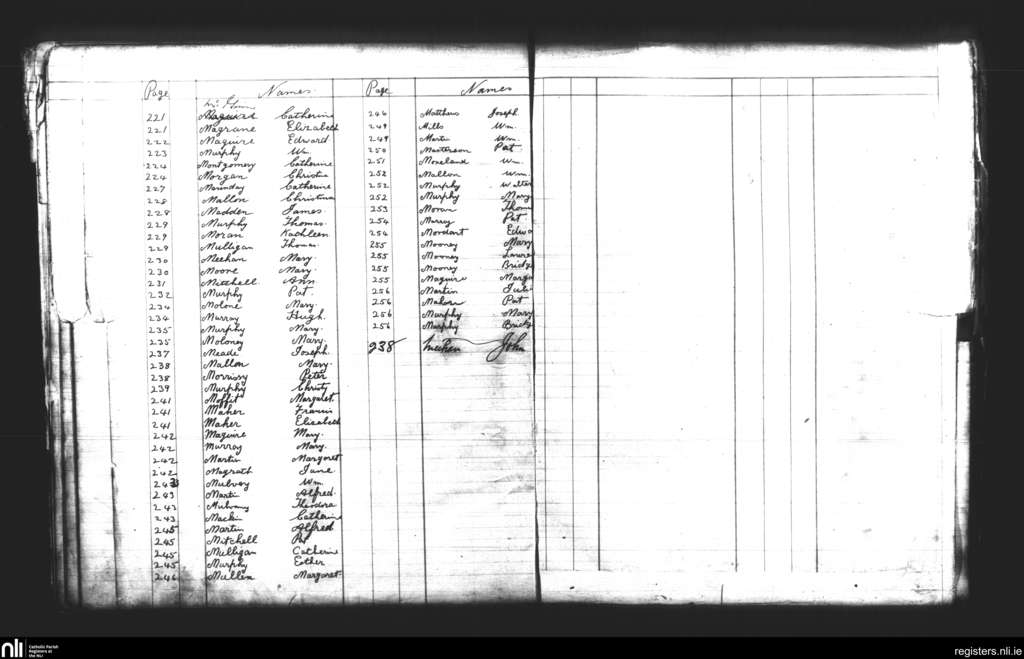 Page Names Page Names
221 Catherine
221 Magrane Elizabeth
222 Maguire Edward
223 Murphy Wm
224 Montgomery Catherine
224 Morgan Christina
227 Catherine
228 Mallon Christina
228 Madden James
229 Murphy Thomas
229 Moran Kathleen
229 Mulligan Thomas
230 Meehan Mary
230 Moore Mary
231 Mitchell Ann
232 Murphy Pat
234 Molone Mary
234 Murray Hugh
235 Murphy Mary
235 Moloney Mary
237 Meade Joseph
238 Mallon Mary
238 Morrissy Peter
239 Murphy Christy
241 Moffit Margaret
241 Maher Francis
241 Maher Elizabeth
242 Maguire Mary
242 Murray Mary
242 Martin Margaret
242 Magrath Jane
243 Mulvey Wm
243 Martin Alfred
243 Mulvany Theodora
243 Mackin Catherine
245 Martin Alfred
245 Mitchell Pat
245 Mulligan Catherine
245 Murphy Esther
246 Mullen Margaret
246 Matthews Joseph
249 Mills Wm
249 Martin Wm
250 Masterson Pat
251 Moreland Wm
252 Mallon Wm
252 Murphy Walter
252 Murphy Mary
253 Moran Thom
254 Murray Pat
254 Mordant Edwa
255 Mooney Mary
255 Mooney Laure
255 Mooney Bridge
255 Maguire Marga
256 Martin Julia
256 Mahon Pat
256 Murphy Mary
256 Murphy Bridg
238 Meehan John
nli Catholic Parish
Registers at
the NLI
registers.nli.ie